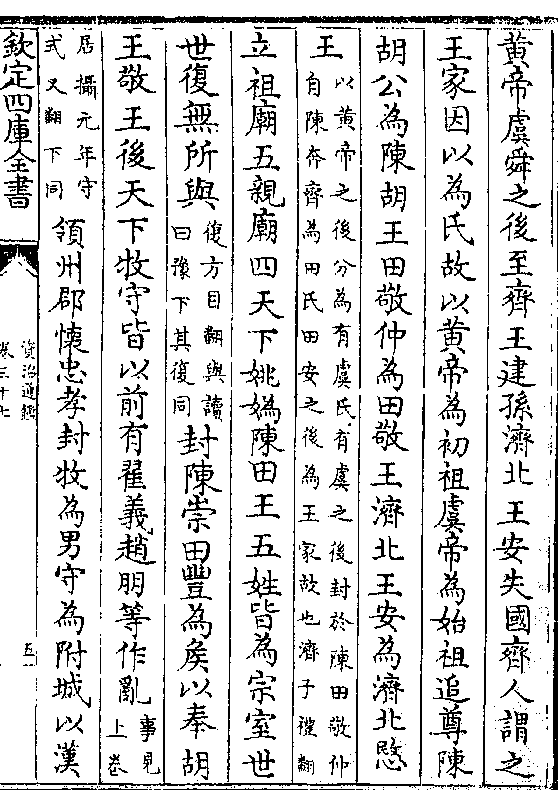 黄帝虞舜之後至齊王建孫濟北王安失國齊人謂之
王家因以為氏故以黄帝為初祖虞帝為始祖追尊陳
胡公為陳胡王田敬仲為田敬王濟北王安為濟北愍
王以黄帝之後分為有虞氏有虞之後封於陳田敬仲
自陳奔齊為田氏田安之後為王家故也濟子禮翻
立祖廟五親廟四天下姚媯陳田王五姓皆為宗室世
世復無所與復方目翻與讀
曰豫下其復同封陳崇田豐為矦以奉胡
王敬王後天下牧守皆以前有翟義趙朋等作亂事見
上卷
居攝元年守
式又翻下同領州郡懷忠孝封牧為男守為附城以漢
欽定四庫全書
資治通鑑
卷三十七
五